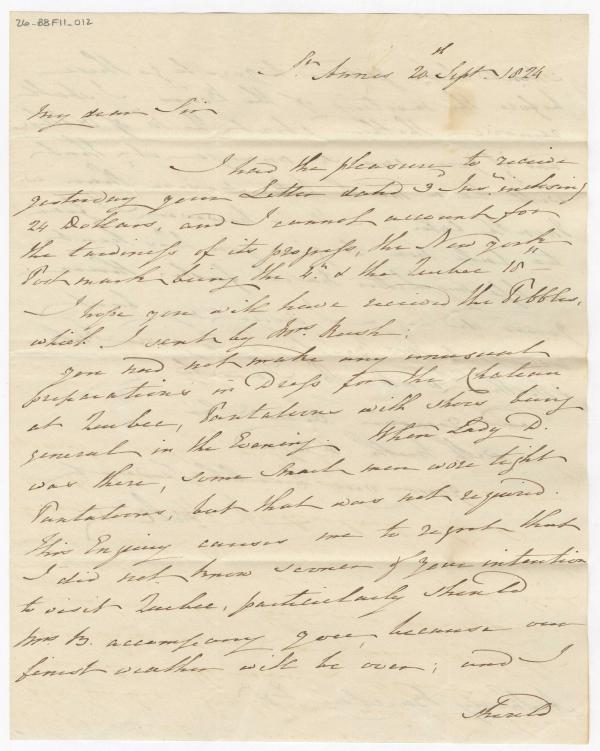 26-BBF11-012
St Annes 20th Sept. 1824
My dear Sir
I had the pleasure to receive
yesterday your Letter dated 3d Inst inclosing
24 Dollars, and I cannot account for
the tardiness of its progress, the New York
Post mark being the 4th & the Quebec 18th
I hope you will have received the Pebbles,
which I sent by Mrs Rush.
you need not make any unusual
preparations in Dress for the Chateau
at Quebec, Pantaloons with shoes being
general in the Evening. When Lady D.
was there, some smart men wore tight
Pantaloons, but that was not required.
This Enquiry causes me to regret that
I did not know sooner of your intention
to visit Quebec, particularly should
Mrs. B. accompany you, because our
finest weather will be over; and I
should